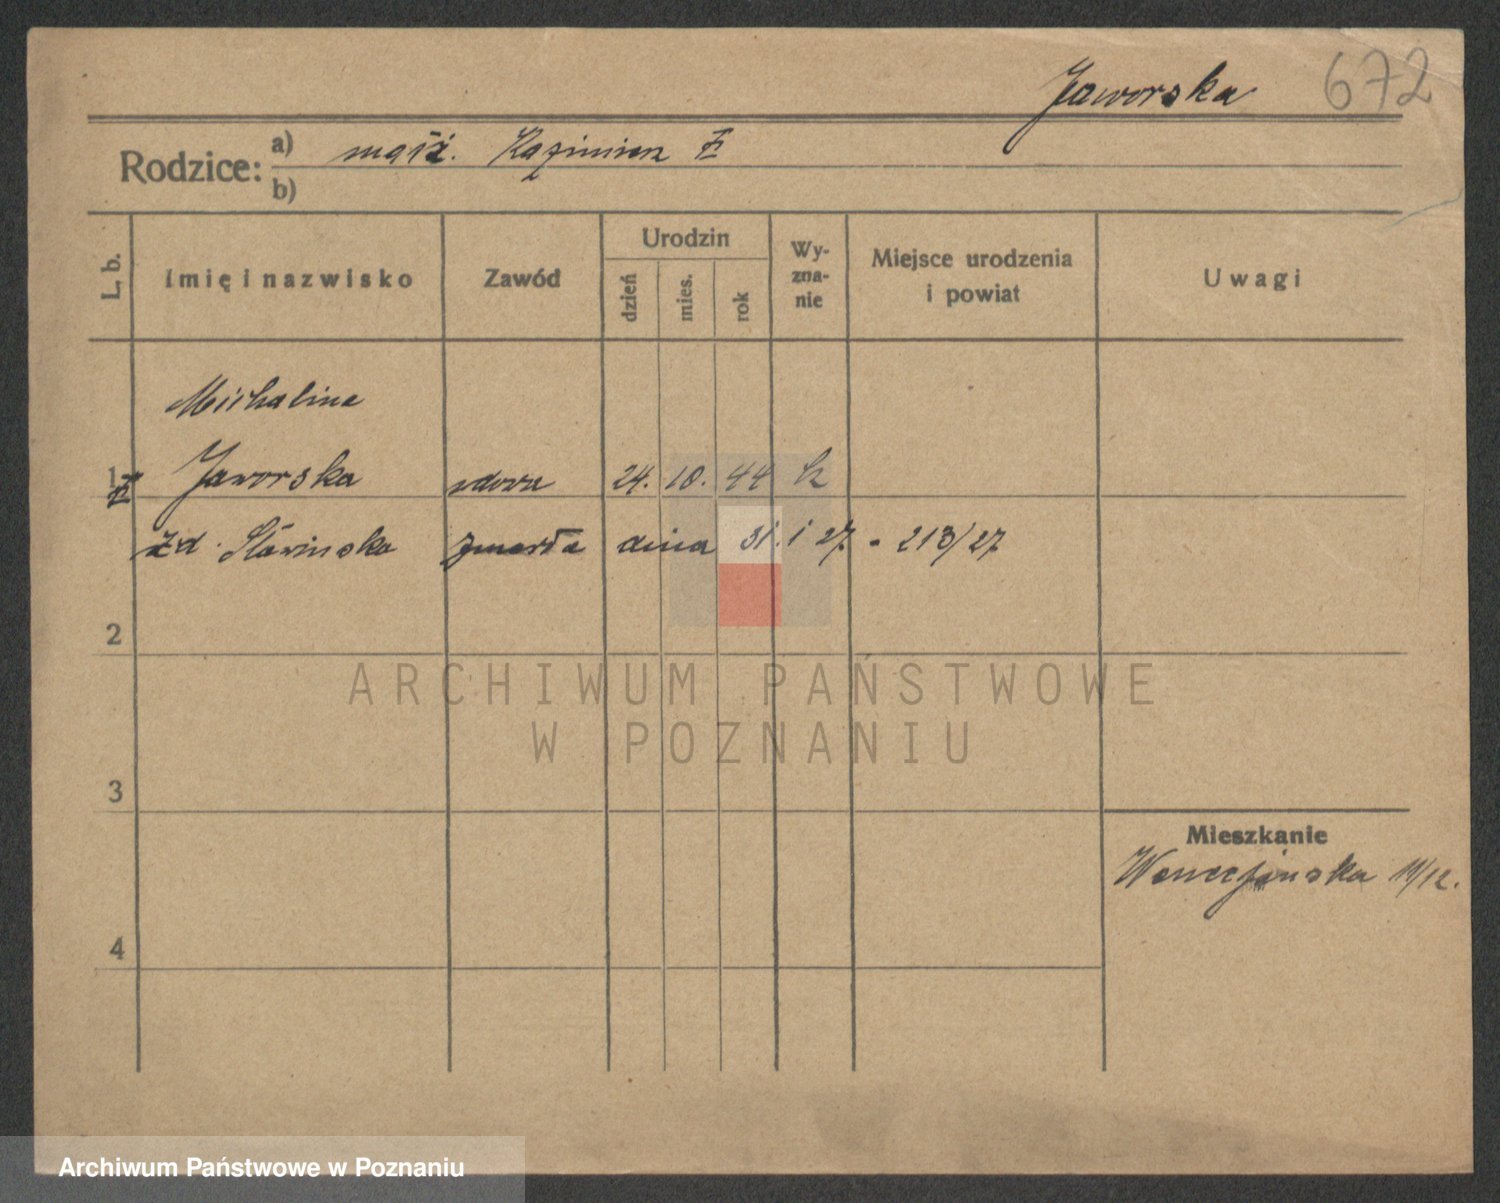 Jaworska 672
Rodzice: a) małż. Kazimierz
b)
L. b. Imię i nazwisko Zawód Urodzin dzień mies. rok Wyznanie Miejsce urodzenia i powiat Uwagi
Michalina
1 Jaworska wdowa 24. 10. 44 k
zd. Sławinska zmarła dnia 31. 1 27. - 213/27
2
ARCHIWUM PAŃSTWOWE
W POZNANIU
3
Mieszkanie
Wenecjańska 11/12.
4
Archiwum Państwowe w Poznaniu